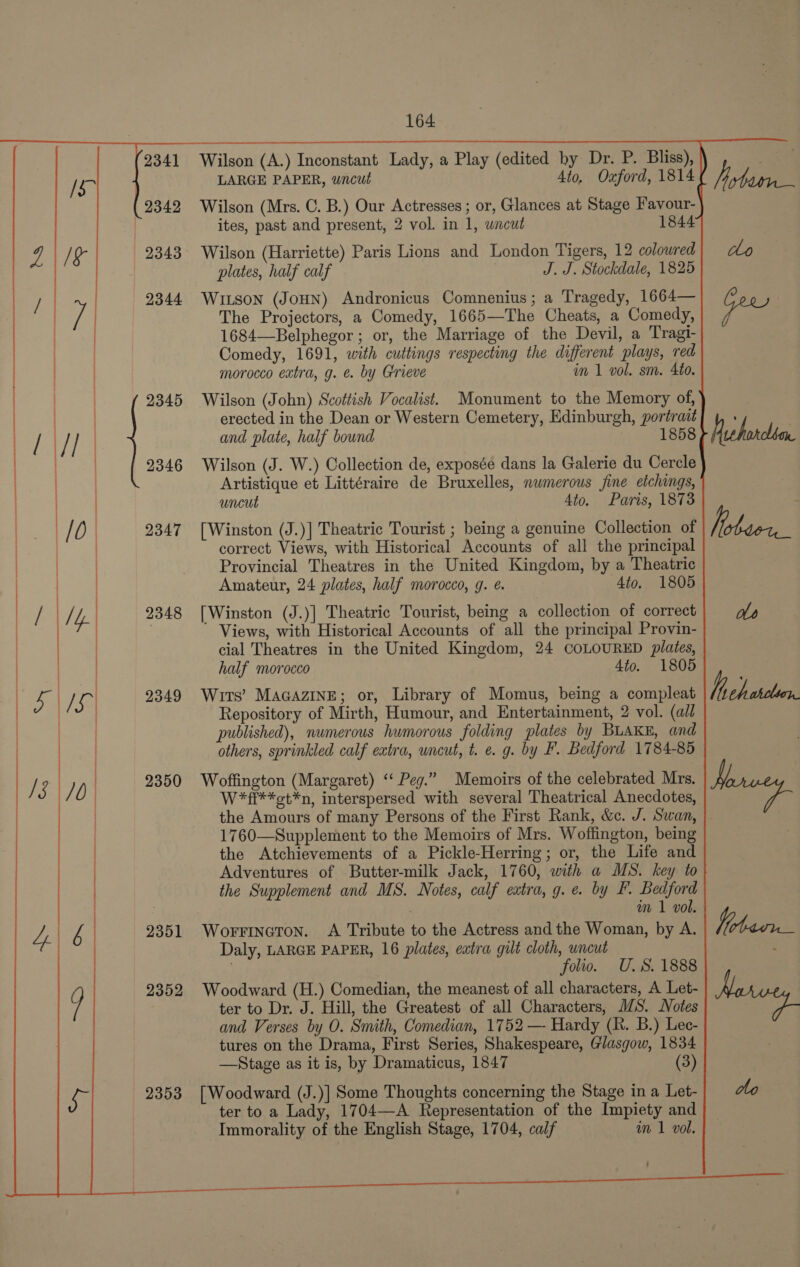 164
15 2341 Wilson (A.) Inconstant Lady, a Play (edited by Dr. P. Bliss),
LARGE PAPER, uncut 4to, Oxford, 1814 Robson
2342 Wilson (Mrs. C. B.) Our Actresses; or, Glances at Stage Favour-
ites, past and present, 2 vol. in 1, uncut 1844
2 18 2343 Wilson (Harriette) Paris Lions and London Tigers, 12 coloured do
plates, half calf J. J. Stockdale, 1825
1 7 2344 WILSON (JOHN) Andronicus Comnenius; a Tragedy, 1664— Gee
The Projectors, a Comedy, 1665—The Cheats, a Comedy,
1684—Belphegor; or, the Marriage of the Devil, a Tragi-
Comedy, 1691, with cuttings respecting the different plays, red
morocco extra, g. e. by Grieve in 1 vol. sm. 4to.
2345 Wilson (John) Scottish Vocalist. Monument to the Memory of,
erected in the Dean or Western Cemetery, Edinburgh, portrait
1 11 and plate, half bound 1858 Richardson
2346 Wilson (J. W.) Collection de, exposéé dans la Galerie du Cercle
Artistique et Littéraire de Bruxelles, numerous fine etchings,
uncut 4to. Paris, 1873
10 2347 [Winston (J.)] Theatric Tourist; being a genuine Collection of Robson
correct Views, with Historical Accounts of all the principal
Provincial Theatres in the United Kingdom, by a Theatric
Amateur, 24 plates, half morocco, g. e. 4to. 1805
1 14 2348 [Winston (J.)] Theatric Tourist, being a collection of correct do
Views, with Historical Accounts of all the principal Provin-
cial Theatres in the United Kingdom, 24 COLOURED plates,
half morocco 4to. 1805
5 15 2349 WITS' MAGAZINE; or, Library of Momus, being a compleat Richardson
Repository of Mirth, Humour, and Entertainment, 2 vol. (all
published), numerous humorous folding plates by BLAKE, and
others, sprinkled calf extra, uncut, t. e. g. by F. Bedford 1784-85
13 10 2350 Woffington (Margaret) “Peg.” Memoirs of the celebrated Mrs. Harvey
W*ff**gt*n, interspersed with several Theatrical Anecdotes,
the Amours of many Persons of the First Rank, &c. J. Swan,
1760—Supplement to the Memoirs of Mrs. Woffington, being
the Atchievements of a Pickle-Herring; or, the Life and
Adventures of Butter-milk Jack, 1760, with a MS. key to
the Supplement and MS. Notes, calf extra, g. e. by F. Bedford
in 1 vol.
4 6 2351 WOFFINGTON. A Tribute to the Actress and the Woman, by A. Robson
Daly, LARGE PAPER, 16 plates, extra gilt cloth, uncut
folio. U. S. 1888
9 2352 Woodward (H.) Comedian, the meanest of all characters, A Let- Harvey
ter to Dr. J. Hill, the Greatest of all Characters, MS. Notes
and Verses by O. Smith, Comedian, 1752—Hardy (R. B.) Lec-
tures on the Drama, First Series, Shakespeare, Glasgow, 1834
—Stage as it is, by Dramaticus, 1847 (3)
5 2353 [Woodward (J.)] Some Thoughts concerning the Stage in a Let- do
ter to a Lady, 1704—A Representation of the Impiety and
Immorality of the English Stage, 1704, calf in 1 vol.